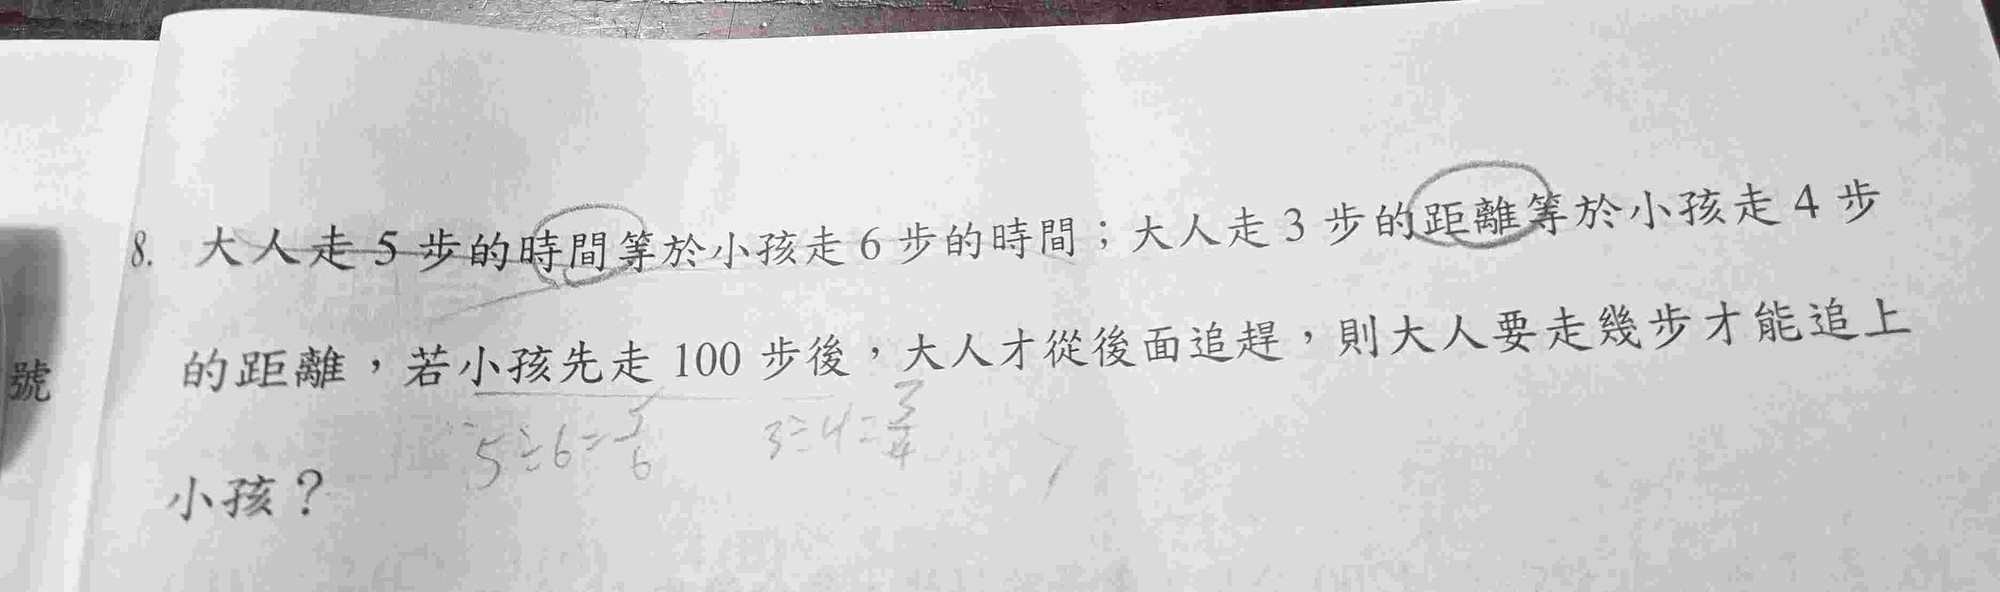 8. 大人走 5 步的時間等於小孩走 6 步的時間；大人走 3 步的距離等於小孩走 4 步
的距離，若小孩先走 100 步後，大人才從後面追趕，則大人要走幾步才能追上
號
5÷6=5/6 3÷4=3/4
小孩？